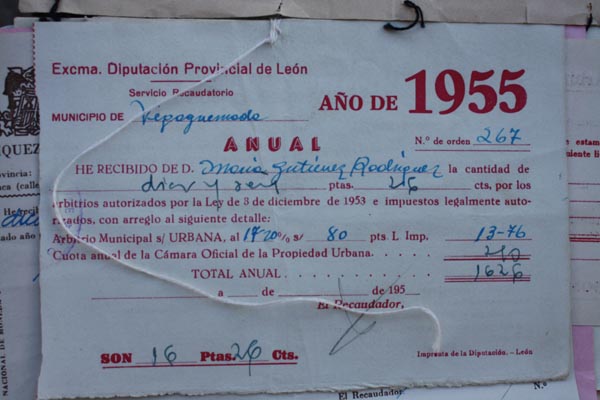 Excma. Diputación Provincial de León
Servicio Recaudatorio
MUNICIPIO DE Vegaquemada
AÑO DE 1955
ANUAL
N.º de orden 267
HE RECIBIDO DE D. Maria Gutierrez Rodriguez la cantidad de
diez y seis ptas. 26 cts, por los
arbitrios autorizados por la Ley de 3 de diciembre de 1953 e impuestos legalmente auto-
rizados, con arreglo al siguiente detalle:
Arbitrio Municipal s/ URBANA, al 17'20% s/ 80 pts. L. Imp. 13-76
Cuota anual de la Cámara Oficial de la Propiedad Urbana.
TOTAL ANUAL 1626
a de de 195
El Recaudador,
SON 16 Ptas. 26 Cts.
Impresta de la Diputación. - León
El Recaudador
N.º